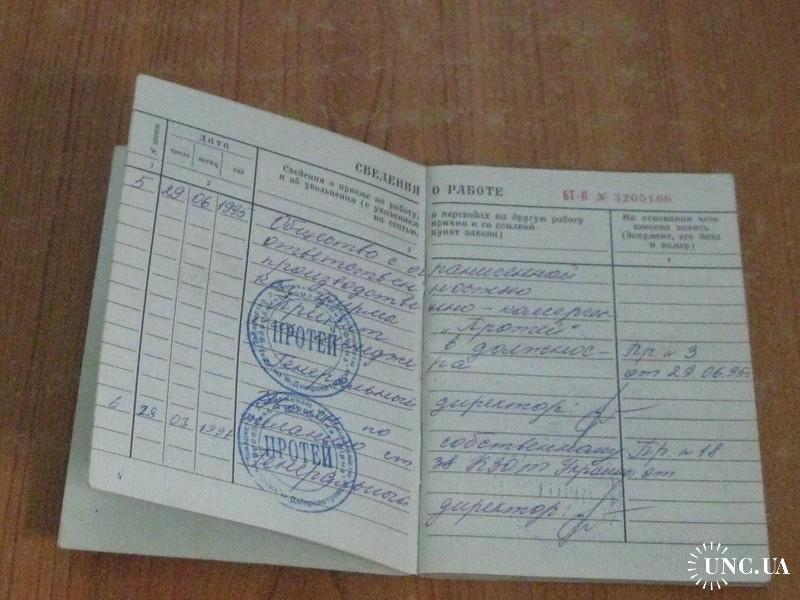 СВЕДЕНИЯ О РАБОТЕ
БТ-II № 3205166
№ записи
дата
число месяц год
Сведения о приеме на работу, о переводах на другую работу
и об увольнении (с указанием причин и со ссылкой
на статью, пункт закона)
На основании чего
внесена запись
(документ, его дата
и номер)
1 2 3 4
5 29 06 1995 Общество с ограниченной
ответственностью
производственно-коммерчес
фирма „Протей“
Принят в должнос-
ра Пр. № 3
от 29.06.95г
Генеральный директор:
ПРОТЕЙ
6 28 03 1997 по собственному Пр. № 18
желанию ст. 38 КЗоТ Украины от
Генеральный директор:
ПРОТЕЙ
м. Дніпропетровськ
4
UNC.UA